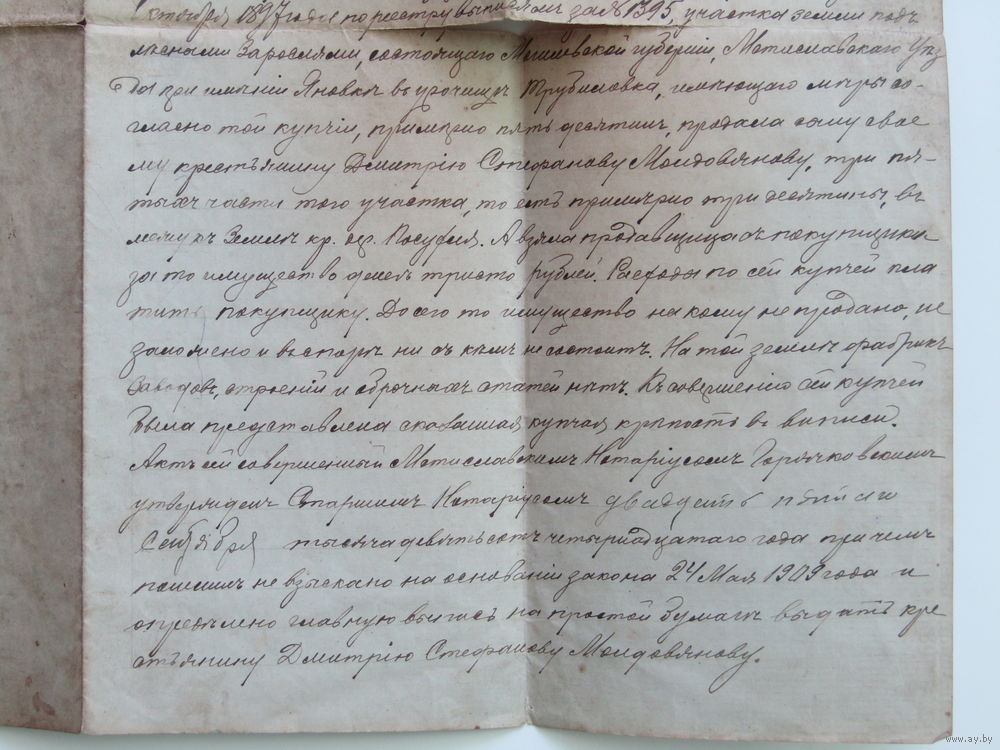 Октября 1897 года по реестру выписями за № 1395, участка земли подъ
лѣсными зарослями, состоящаго Могилевской губерніи, Мстиславскаго Уѣз
да при имѣніи Яновкѣ въ урочищѣ Трубиловка, имѣющаго мѣры со-
гласно той купчіи, примѣрно пять десятинъ, продала сему свое
му крестьянину Дмитрію Стефанову Молдовянову, три пя-
тыхъ части того участка, то есть примѣрно три десятины, въ
къ землѣ кр. А взяла продавщица съ покупщика
за то имущество денегъ триста рублей. Расходы по сей купчей пла
тить покупщику. До сего то имущество на кому не продано, не
заложено и въ спорѣ ни съ кѣмъ не состоитъ. На той землѣ фабрикъ
заводовъ, строеній и оброчныхъ статей нѣтъ. Къ совершенію сей купчей
была представлена сказанная купчая крѣпость въ выписи.
Актъ сей совершенный Мстиславскимъ Нотаріусомъ Горячковскимъ
утвержденъ Старшимъ Нотаріусомъ двадцать пятаго
Сентября тысяча девятьсотъ четырнадцатаго года при чемъ
пошлинъ не взыскано на основаніи закона 24 Мая 1909 года и
опредѣлено главную выпись на простой бумагѣ выдать кре
стьянину Дмитрію Стефанову Молдовянову.
www.ay.by